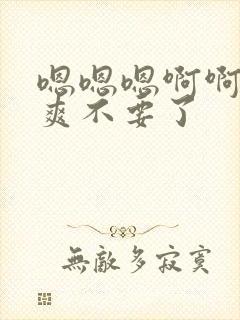 嗯嗯嗯啊啊
爽不要了
無敵多寂寞